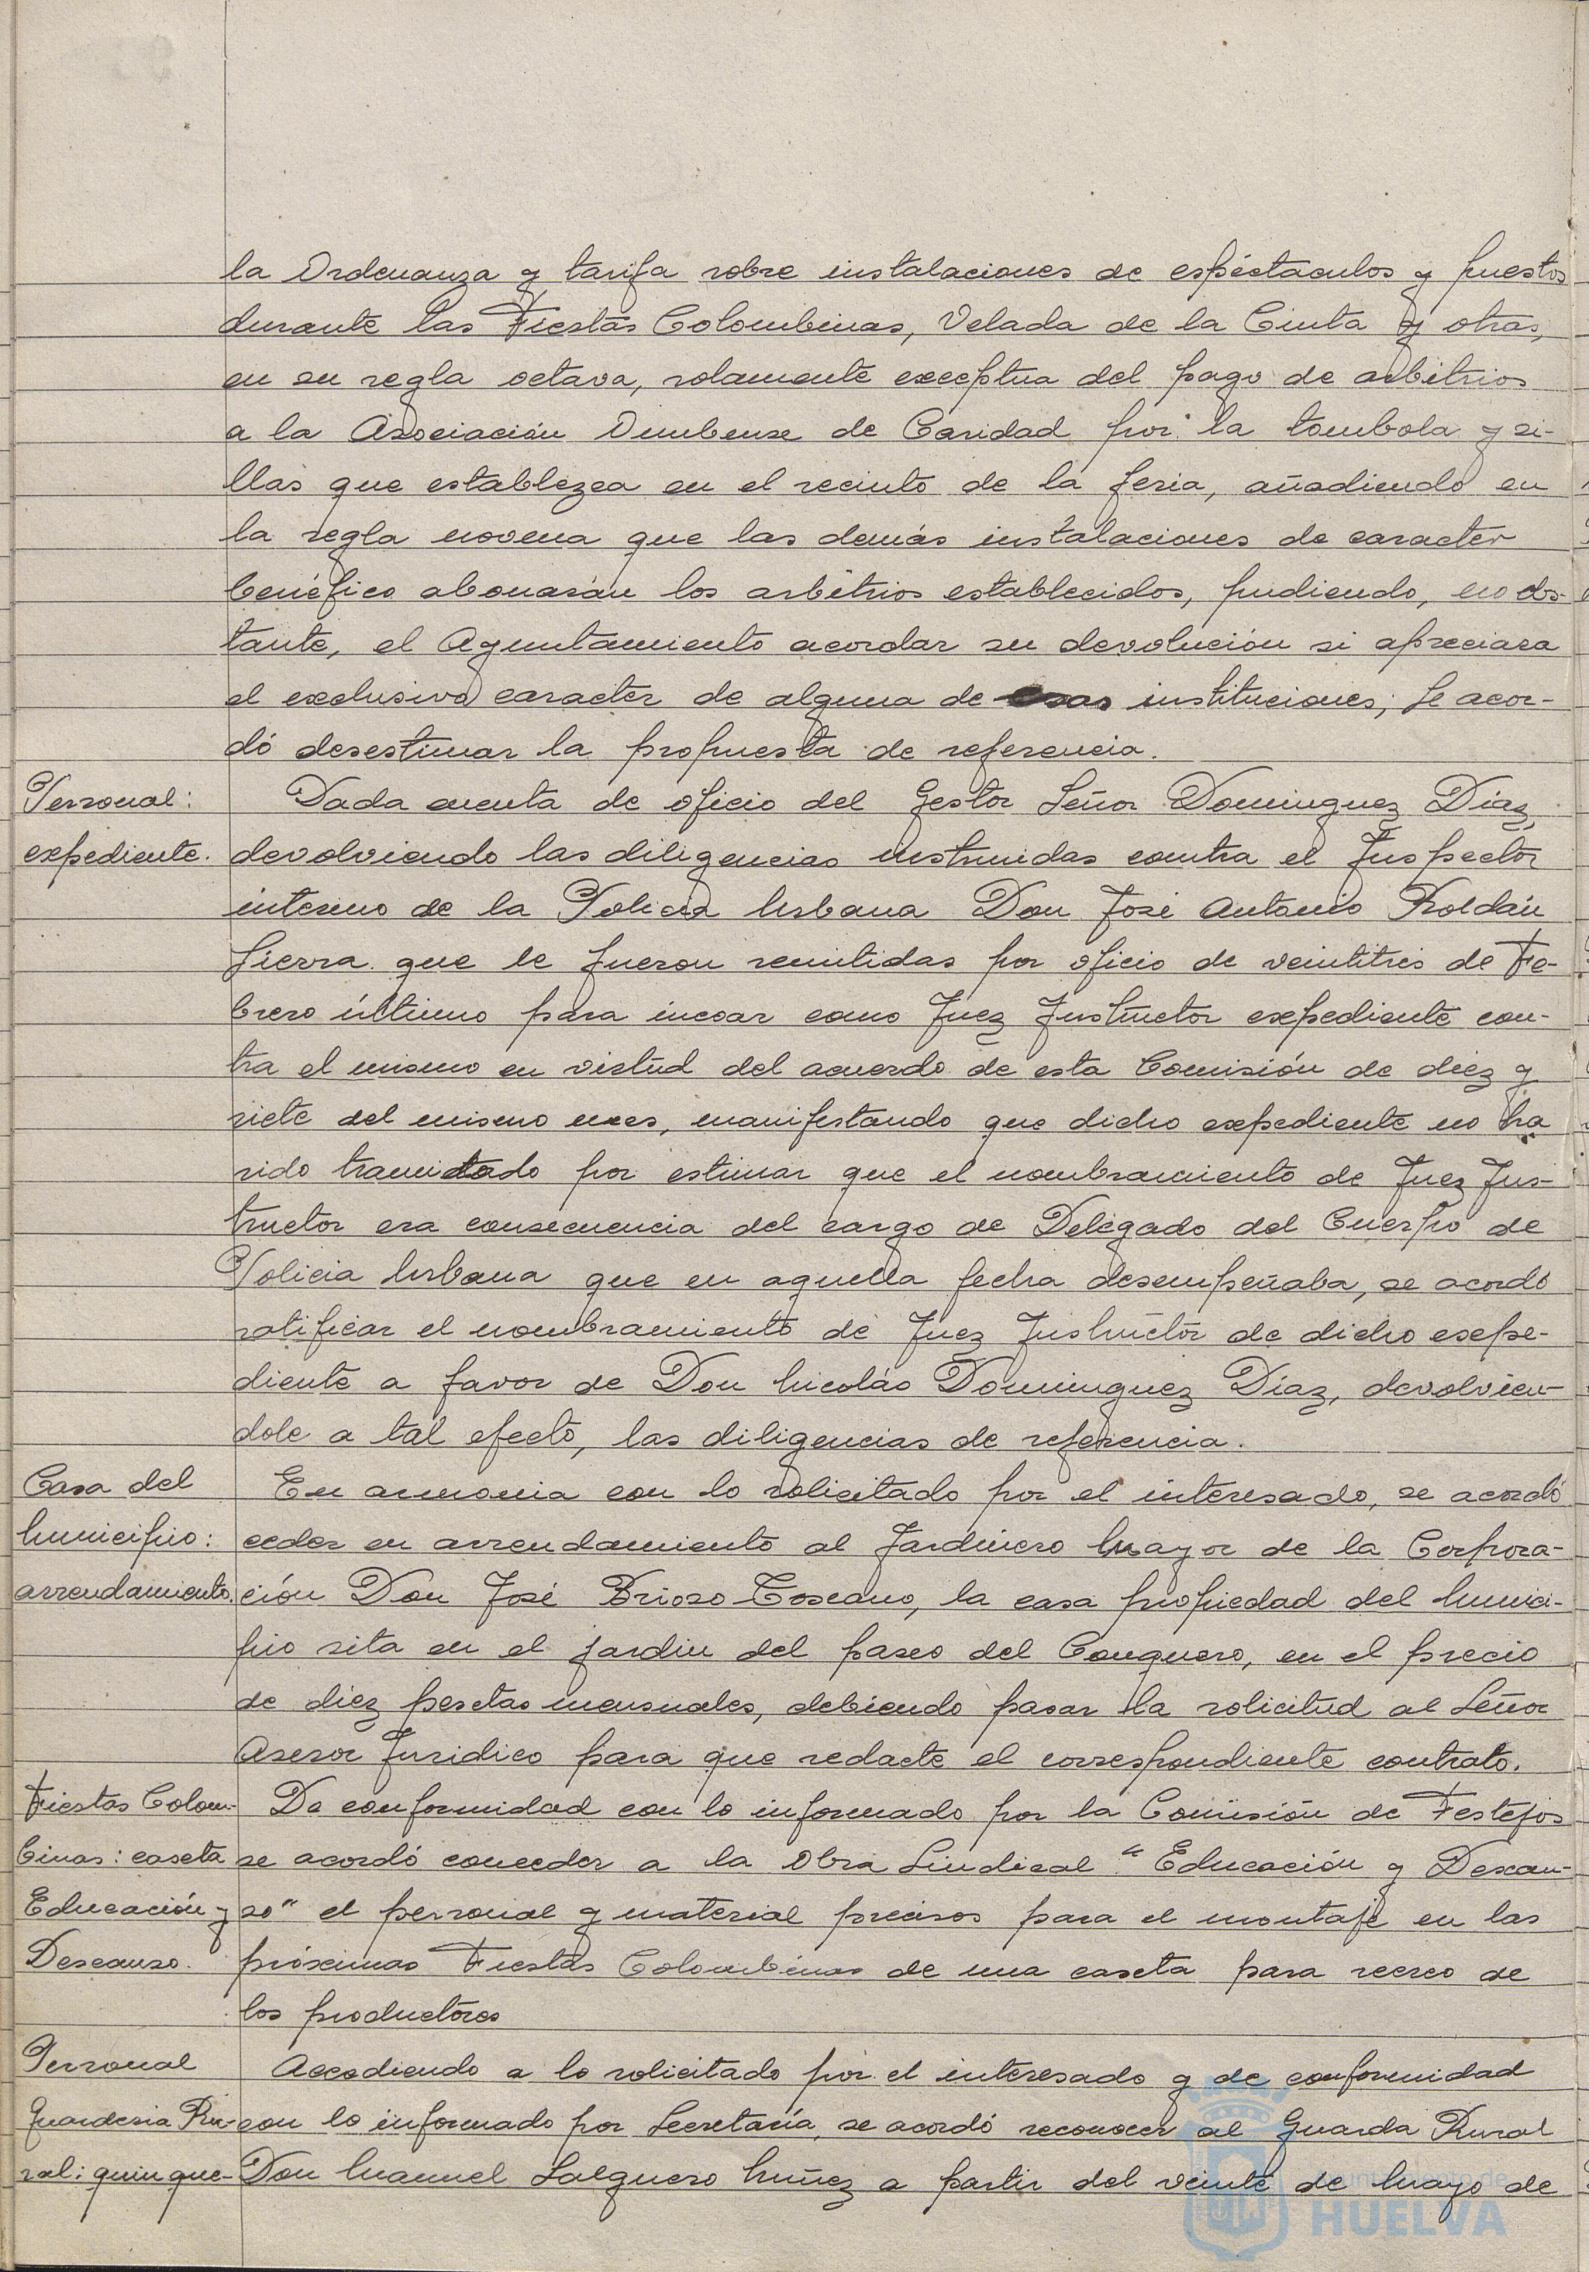 la Ordenanza y tarifa sobre instalaciones de espéctaculos y puestos
durante las Fiestas Colombinas, Velada de la Cinta y otras,
en su regla octava, solamente exceptua del pago de arbitrios
a la Asociación Onubense de Caridad por la tombola y si-
llas que establezca en el recinto de la feria, añadiendo en
la regla novena que las demás instalaciones de caracter
benéfico abonarán los arbitrios establecidos, pudiendo, no obs-
tante, el Ayuntamiento acordar su devolución si apreciara
el exclusivo caracter de alguna de esas instituciones; Se acor-
dó desestimar la propuesta de referencia.
Personal:
expediente.
Dada cuenta de oficio del Gestor Señor Dominguez Díaz,
devolviendo las diligencias instruidas contra el Inspector
interino de la Policia Urbana Don José Antonio Roldán
Sierra que le fueron remitidas por oficio de veintitres de Fe-
brero último para incoar como Juez Instructor expediente con-
tra el mismo en virtud del acuerdo de esta Comisión de diez y
siete del mismo mes, manifestando que dicho expediente no ha
sido tramitado por estimar que el nombramiento de Juez Ins-
tructor era consecuencia del cargo de Delegado del Cuerpo de
Policia Urbana que en aquella fecha desempeñaba, se acordó
ratificar el nombramiento de Juez Instructor de dicho expe-
diente a favor de Don Nicolás Dominguez Díaz, devolvien-
dole a tal efecto, las diligencias de referencia.
Casa del
Municipio:
arrendamiento.
En armonia con lo solicitado por el interesado, se acordó
ceder en arrendamiento al Jardinero Mayor de la Corpora-
ción Don José Brioso Toscano, la casa propiedad del Munici-
pio sita en el jardin del paseo del Conquero, en el precio
de diez pesetas mensuales, debiendo pasar la solicitud al Señor
Asesor Juridico para que redacte el correspondiente contrato.
Fiestas Colom-
binas: caseta
Educación y
Descanso.
De conformidad con lo informado por la Comisión de Festejos
se acordó conceder a la Obra Sindical "Educación y Descan-
so" el personal y material precisos para el montaje en las
próximas Fiestas Colombinas de una caseta para recreo de
los productores
Personal
Guarderia Ru-
ral: quinque-
Accediendo a lo solicitado por el interesado y de conformidad
con lo informado por Secretaría, se acordó reconocer al Guarda Rural
Don Manuel Salguero Núñez a partir del veinte de Mayo de
Ayuntamiento de
HUELVA